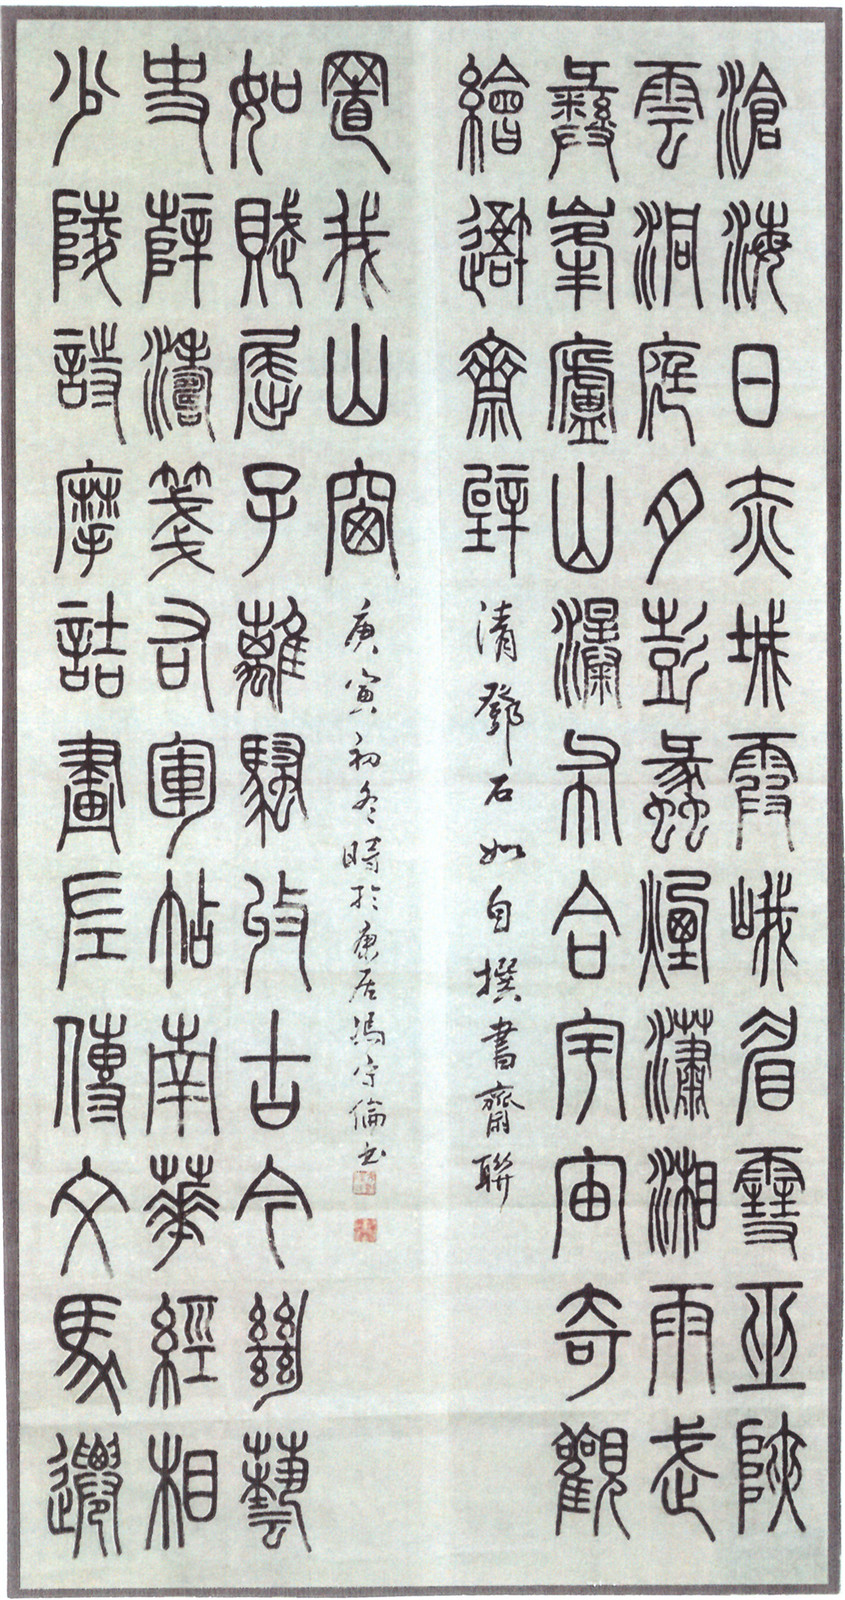 滄海日赤城霞峨眉雪巫陜
雲洞庭月彭蠡煙瀟湘雨武
彝峯廬山瀑布合宇宙奇觀
繪吾齋壁
清鄧石如自撰書齋聯
少陵詩摩詰畫左傳文馬遷
史薛濤箋右軍帖南華經相
如賦屈子離騷收古今絕藝
置我山窗
庚寅初冬時於康居馮守倫書